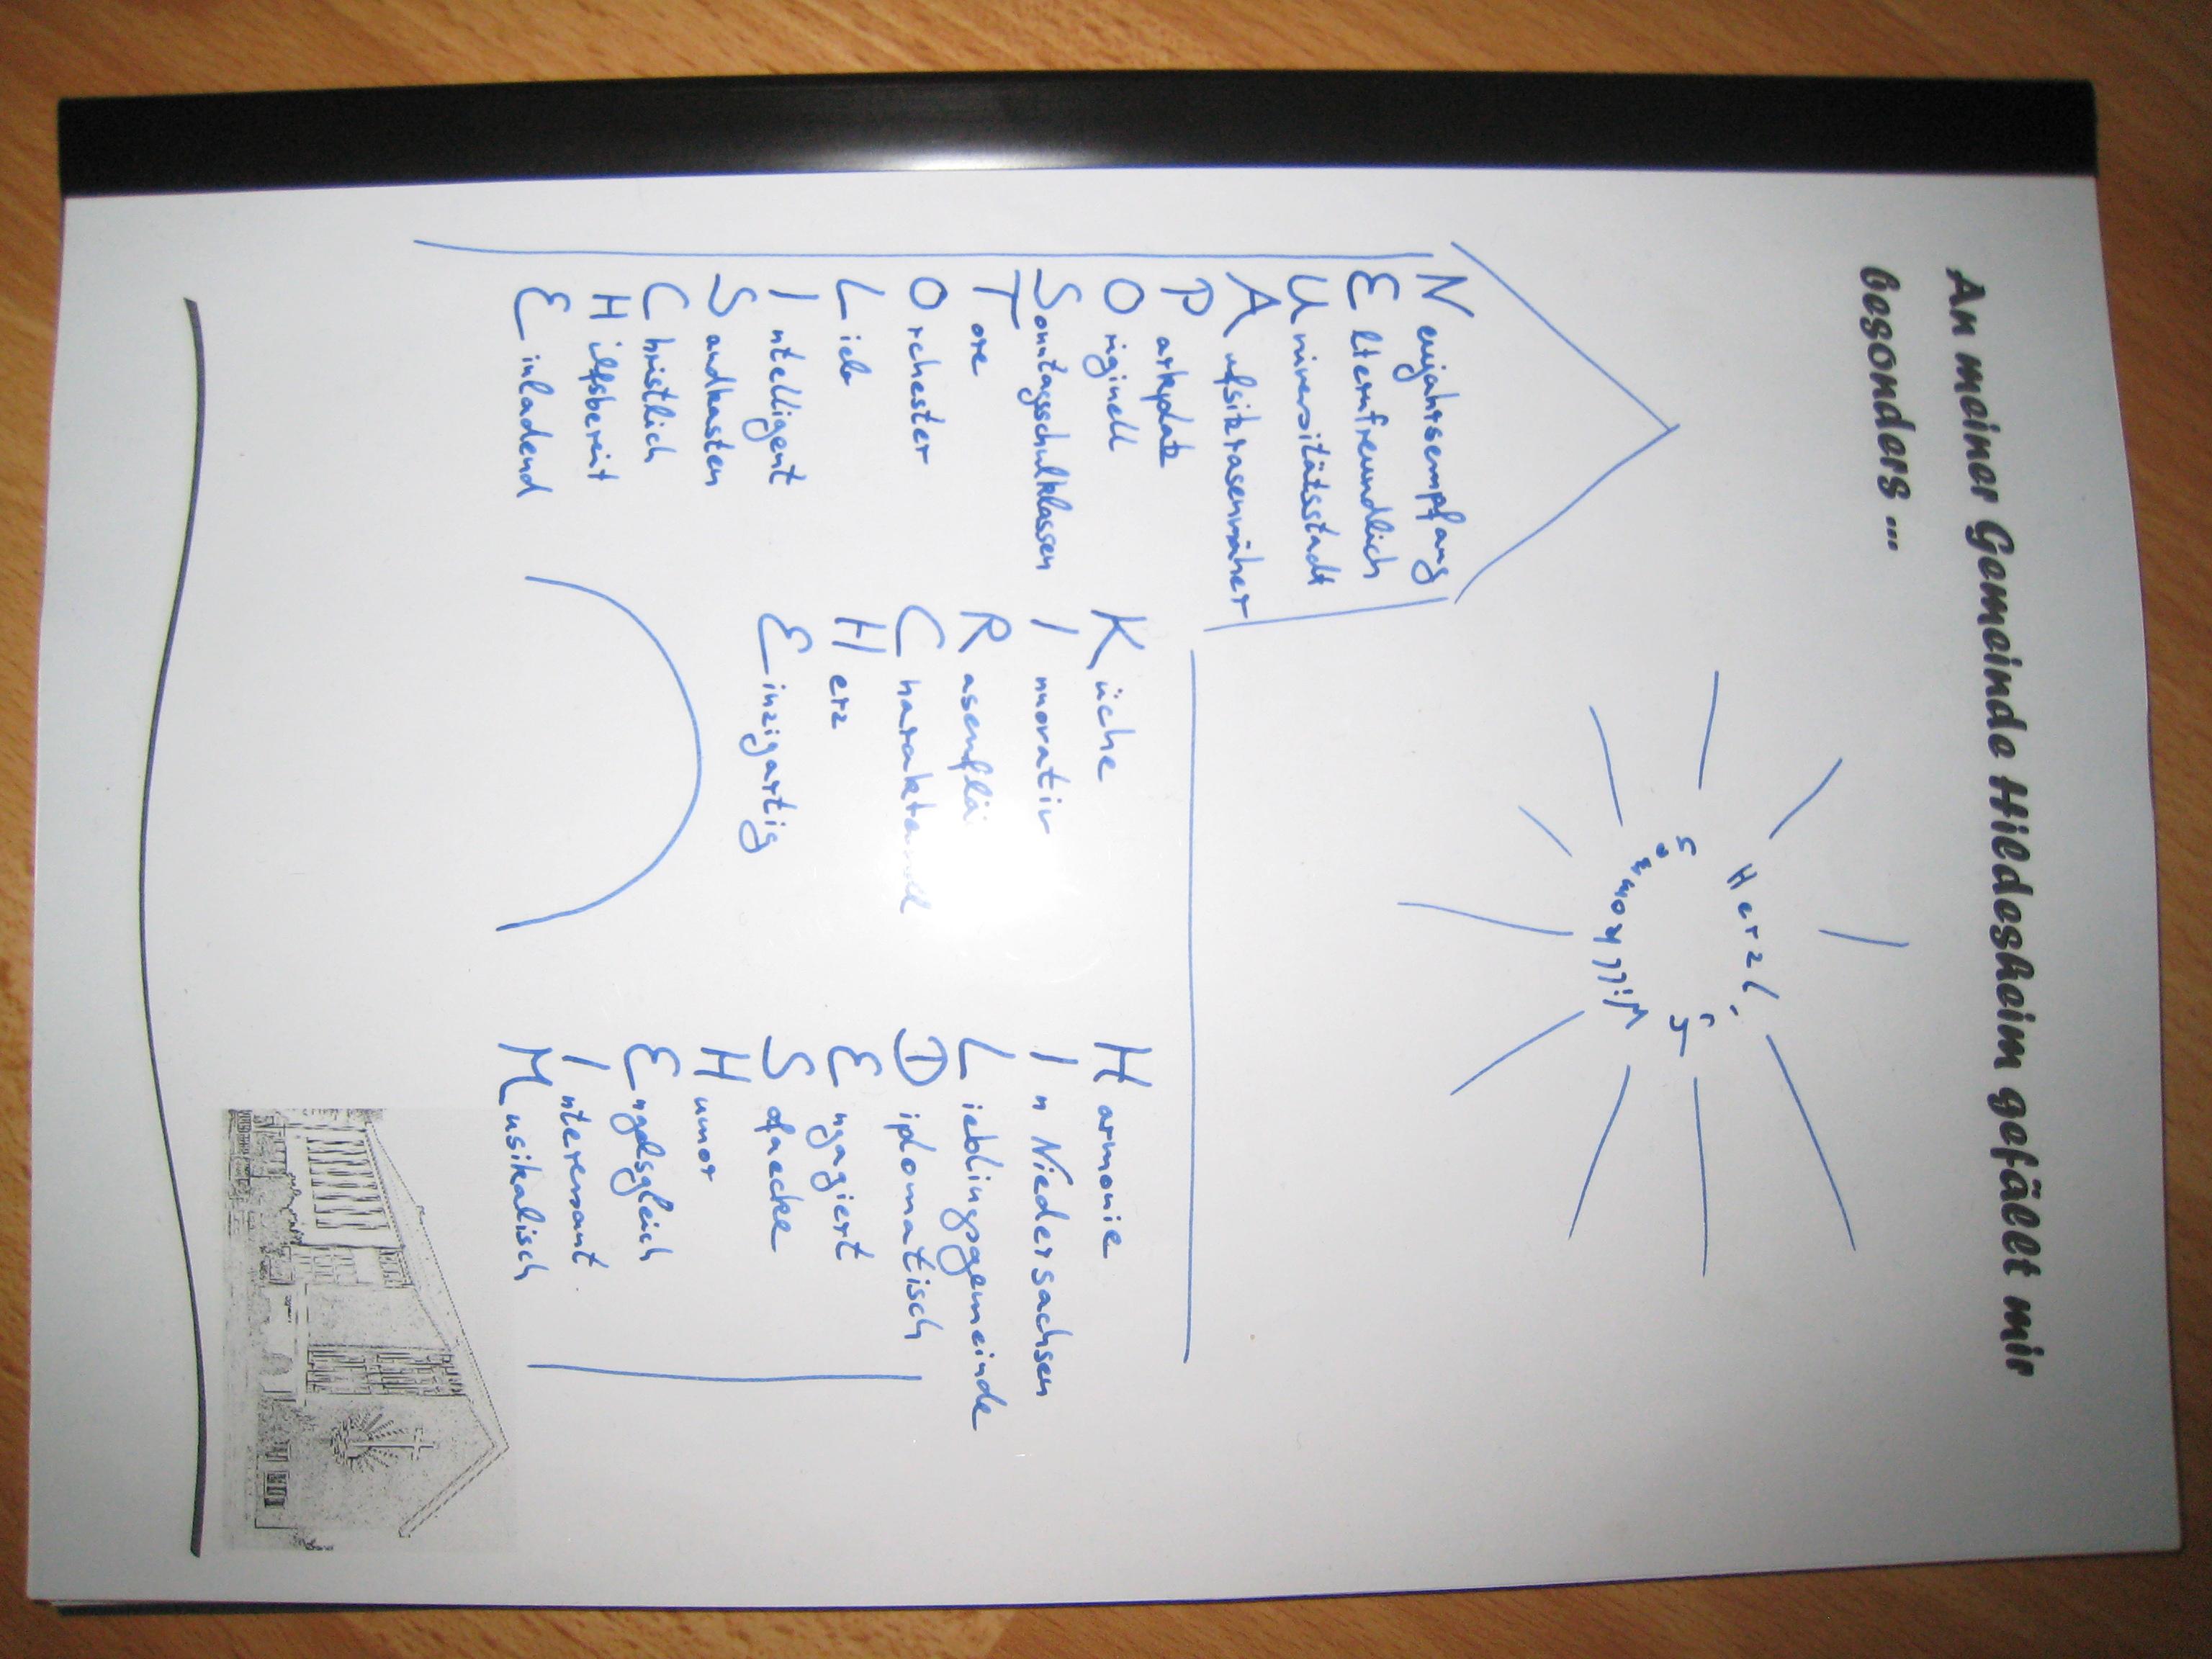 An meiner Gemeinde Hildesheim gefällt mir
besonders ...
Herzlich
Willkommen
Neujahrsempfang
Elternfreundlich
Universitätsstadt
Aufsitzrasenmäher
Parkplatz
Originell
Sonntagsschulklassen
Tore
Orchester
Lieb
Intelligent
Sandkasten
Christlich
Hilfsbereit
Einladend
Küche
Innovativ
Herz
Einzigartig
Harmonie
In Niedersachsen
Lieblingsgemeinde
Diplomatisch
Engagiert
Sofaecke
Humor
Engelsgleich
Interessant
Musikalisch